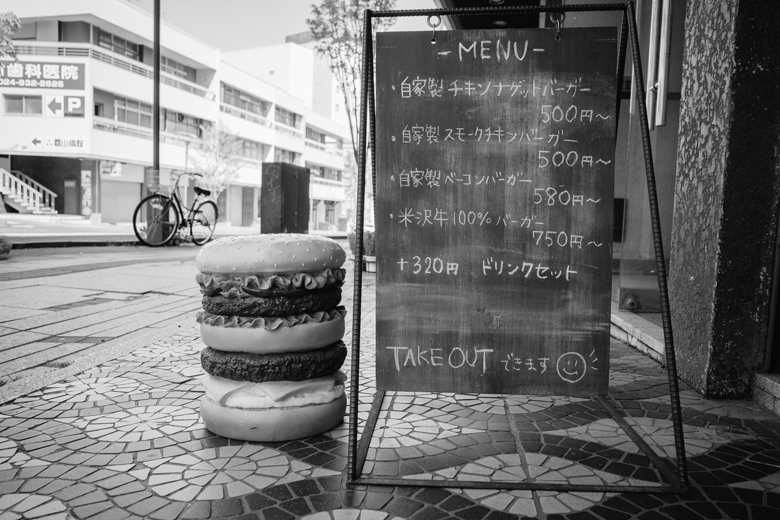 歯科医院
024-932-2625
P
-MENU-
・自家製 チキンナゲットバーガー
500円~
・自家製 スモークチキンバーガー
500円~
・自家製 ベーコンバーガー
580円~
・米沢牛 100% バーガー
750円~
+320円 ドリンクセット
TAKE OUT できます